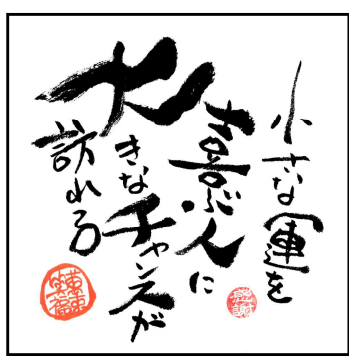 小さな運を
喜ぶ人に
大きなチャンスが
訪れる